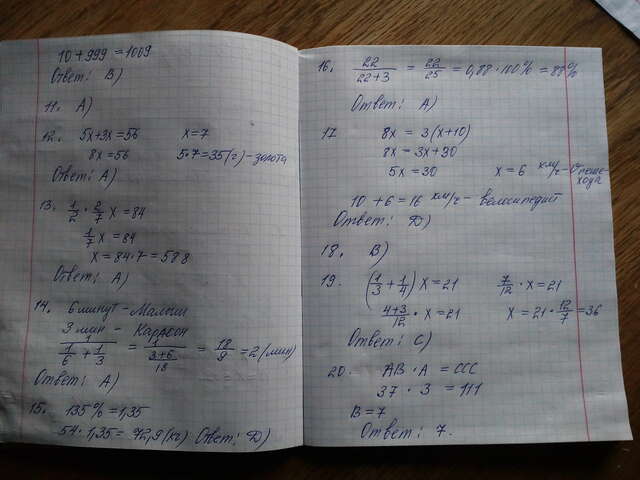 10 + 999 = 1009
Ответ: В)
11. А)
12. 5x+3x=56 x=7
8x=56 5·7=35(г) - золота
Ответ: А)
13. 1/2 · 2/7 x = 84
1/7 x = 84
x = 84·7 = 588
Ответ: А)
14. 6 минут - Малыш
3 мин - Карлсон
1/(1/6 + 1/3) = 1/((3+6)/18) = 18/9 = 2 (мин)
Ответ: А)
15. 135% = 1,35
54·1,35 = 72,9 (кг) Ответ: D)
16. 22/(22+3) = 22/25 = 0,88·100% = 88%
Ответ: А)
17 8x = 3(x+10)
8x = 3x+30
5x = 30 x = 6 км/ч - пешехода
10 + 6 = 16 км/ч - велосипедист
Ответ: D)
18. В)
19. (1/3 + 1/4) x = 21 7/12 · x = 21
(4+3)/12 · x = 21 x = 21 · 12/7 = 36
Ответ: С)
20. АВ · А = ССС
37 · 3 = 111
В = 7
Ответ: 7.